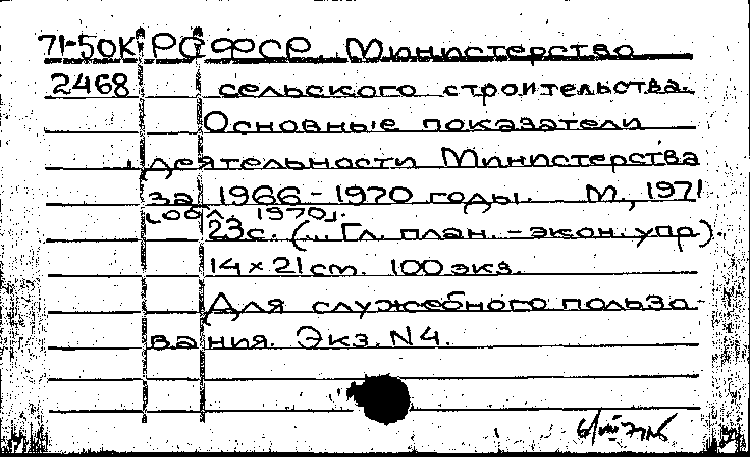 71-50К РСФСР. Министерство
2468 сельского строительства.
Основные показатели
деятельности Министерства
за 1966-1970 годы. М., 1971
[обл. 1970].
23с. (... Гл. план.-экон. упр).
14×21 cm. 100 экз.
Для служебного пользо-
вания. Экз. N4.